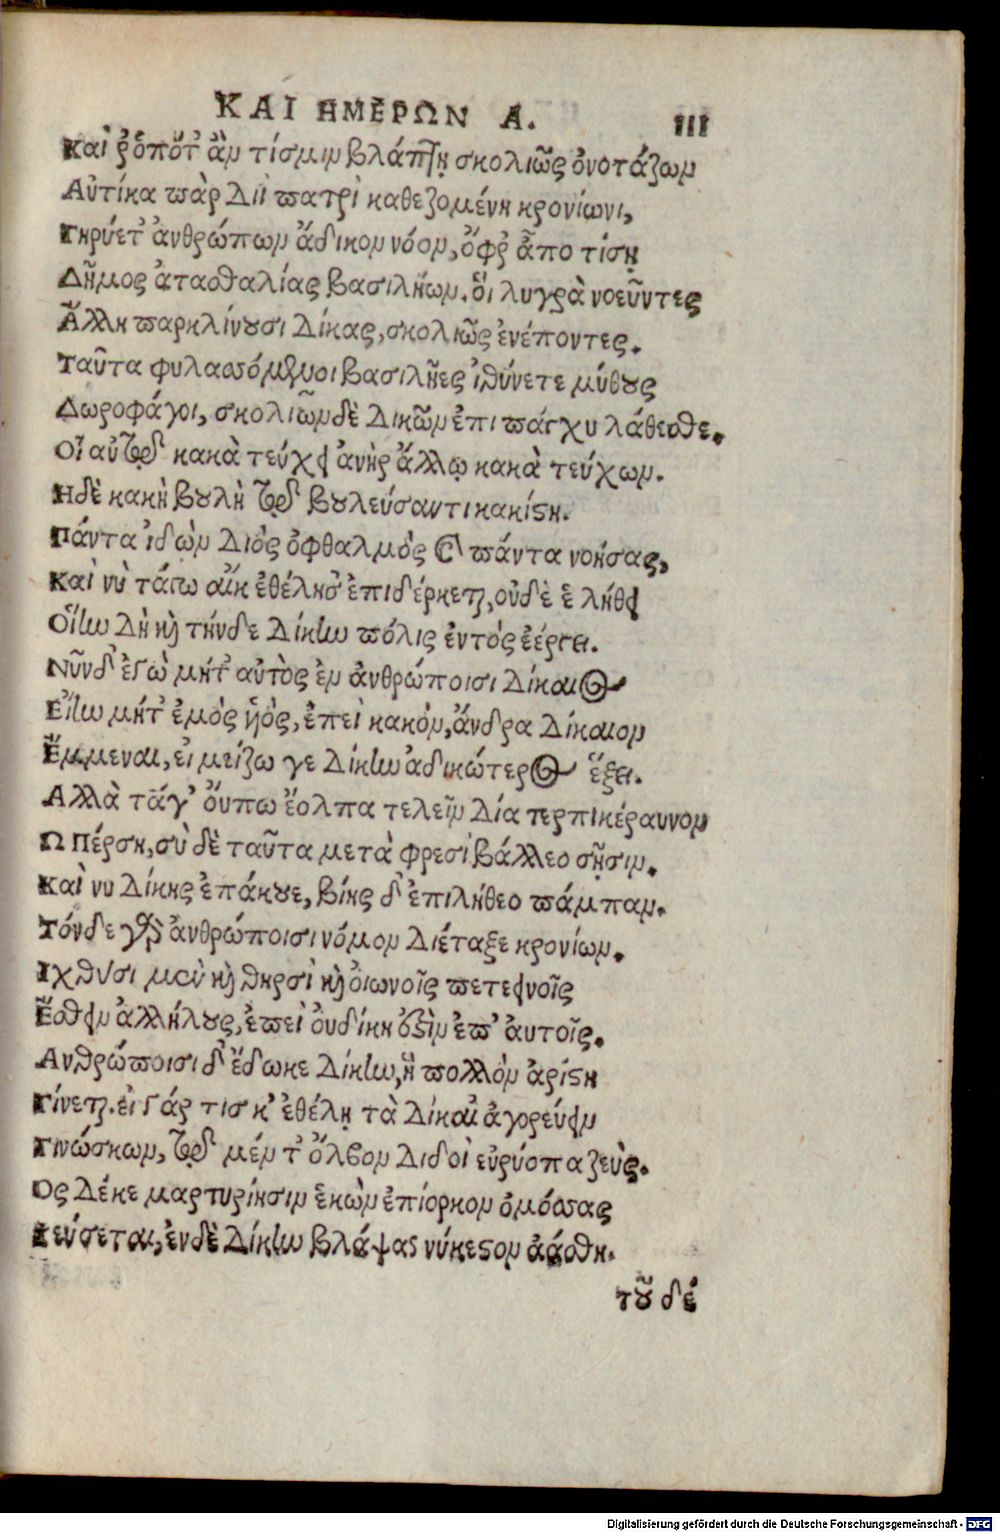 ΚΑΙ ΗΜΕΡΩΝ Α. III
Καὶ ῥ̓ὁπότ᾽ ἄν τίς μιν βλάπτῃ σκολιῶς ὀνοτάζων
Αὐτίκα πὰρ Διὶ πατρὶ καθεζομένη κρονίωνι,
Γηρύετ᾽ ἀνθρώπων ἄδικον νόον, ὄφρ᾽ ἀπο τίσῃ
Δῆμος ἀτασθαλίας βασιλήων. ὃι λυγρὰ νοεῦντες
Ἄλλη παρκλίνουσι Δίκας, σκολιῶς ἐνέποντες.
Ταῦτα φυλασσόμενοι βασιλῆες ἰθύνετε μύθους
Δωροφάγοι, σκολιῶν δὲ Δικῶν ἐπι πάγχυ λάθεσθε.
Οἷ αὐτῷδ κακὰ τεύχει ἀνὴρ ἄλλῳ κακὰ τεύχων.
Ηδὲ κακὴ βουλὴ τῷδ βουλεύσαντι κακίστη.
Πάντα ἰδὼν Διὸς ὀφθαλμὸς καὶ πάντα νοήσας,
Καὶ νὺ τάσω αἴκ ἐθέλησ᾽ ἐπιδέρκεται, οὐδὲ ἓ λήθει
Οἵην Δὴ καὶ τήνδε Δίκην πόλις ἐντὸς ἐέργει.
Νῦν δ᾽ ἐγὼ μήτ᾽ αὐτὸς ἐν ἀνθρώποισι Δίκαιος
Εἴην μήτ᾽ ἐμὸς ὑὸς, ἐπεὶ κακὸν, ἄνδρα Δίκαιον
Ἔμμεναι, εἰ μείζω γε Δίκην ἀδικώτερος ἕξει.
Αλλὰ τάγ᾽ ὄυπω ἔολπα τελεῖν Δία τερπικέραυνον
Ω Πέρση, σὺ δὲ ταῦτα μετὰ φρεσὶ βάλλεο σῇσιν.
Καὶ νυ Δίκης ἐπάκουε, βίης δ᾽ ἐπιλήθεο πάμπαν.
Τόνδε γὰρ ἀνθρώποισι νόμον Διέταξε κρονίων.
Ιχθύσι μὲν καὶ θηρσὶ καὶ ὀιωνοῖς πετεεινοῖς
Ἔσθειν ἀλλήλους, ἐπεὶ ὀυ δίκη ὀξὶν ἐπ᾽ ἀυτοῖς.
Ανθρώποισι δ᾽ ἔδωκε Δίκην, ἣ πολλὸν ἀρίστη
Γίνεται. ἐι γάρ τισ κ᾽ ἐθέλῃ τὰ Δίκαι ἀγορεύειν
Γινώσκων, τῷδ μέν τ᾽ ὄλβον Διδοὶ εὐρύοπα ζεὺς.
Ος Δέκε μαρτυρίησιν ἑκὼν ἐπίορκον ὀμόσσας
Ψεύσεται, ἐν δὲ Δίκην βλάψας νήκεστον ἀάσθη.
τοῦ δέ
Digitalisierung gefördert durch die Deutsche Forschungsgemeinschaft - DFG